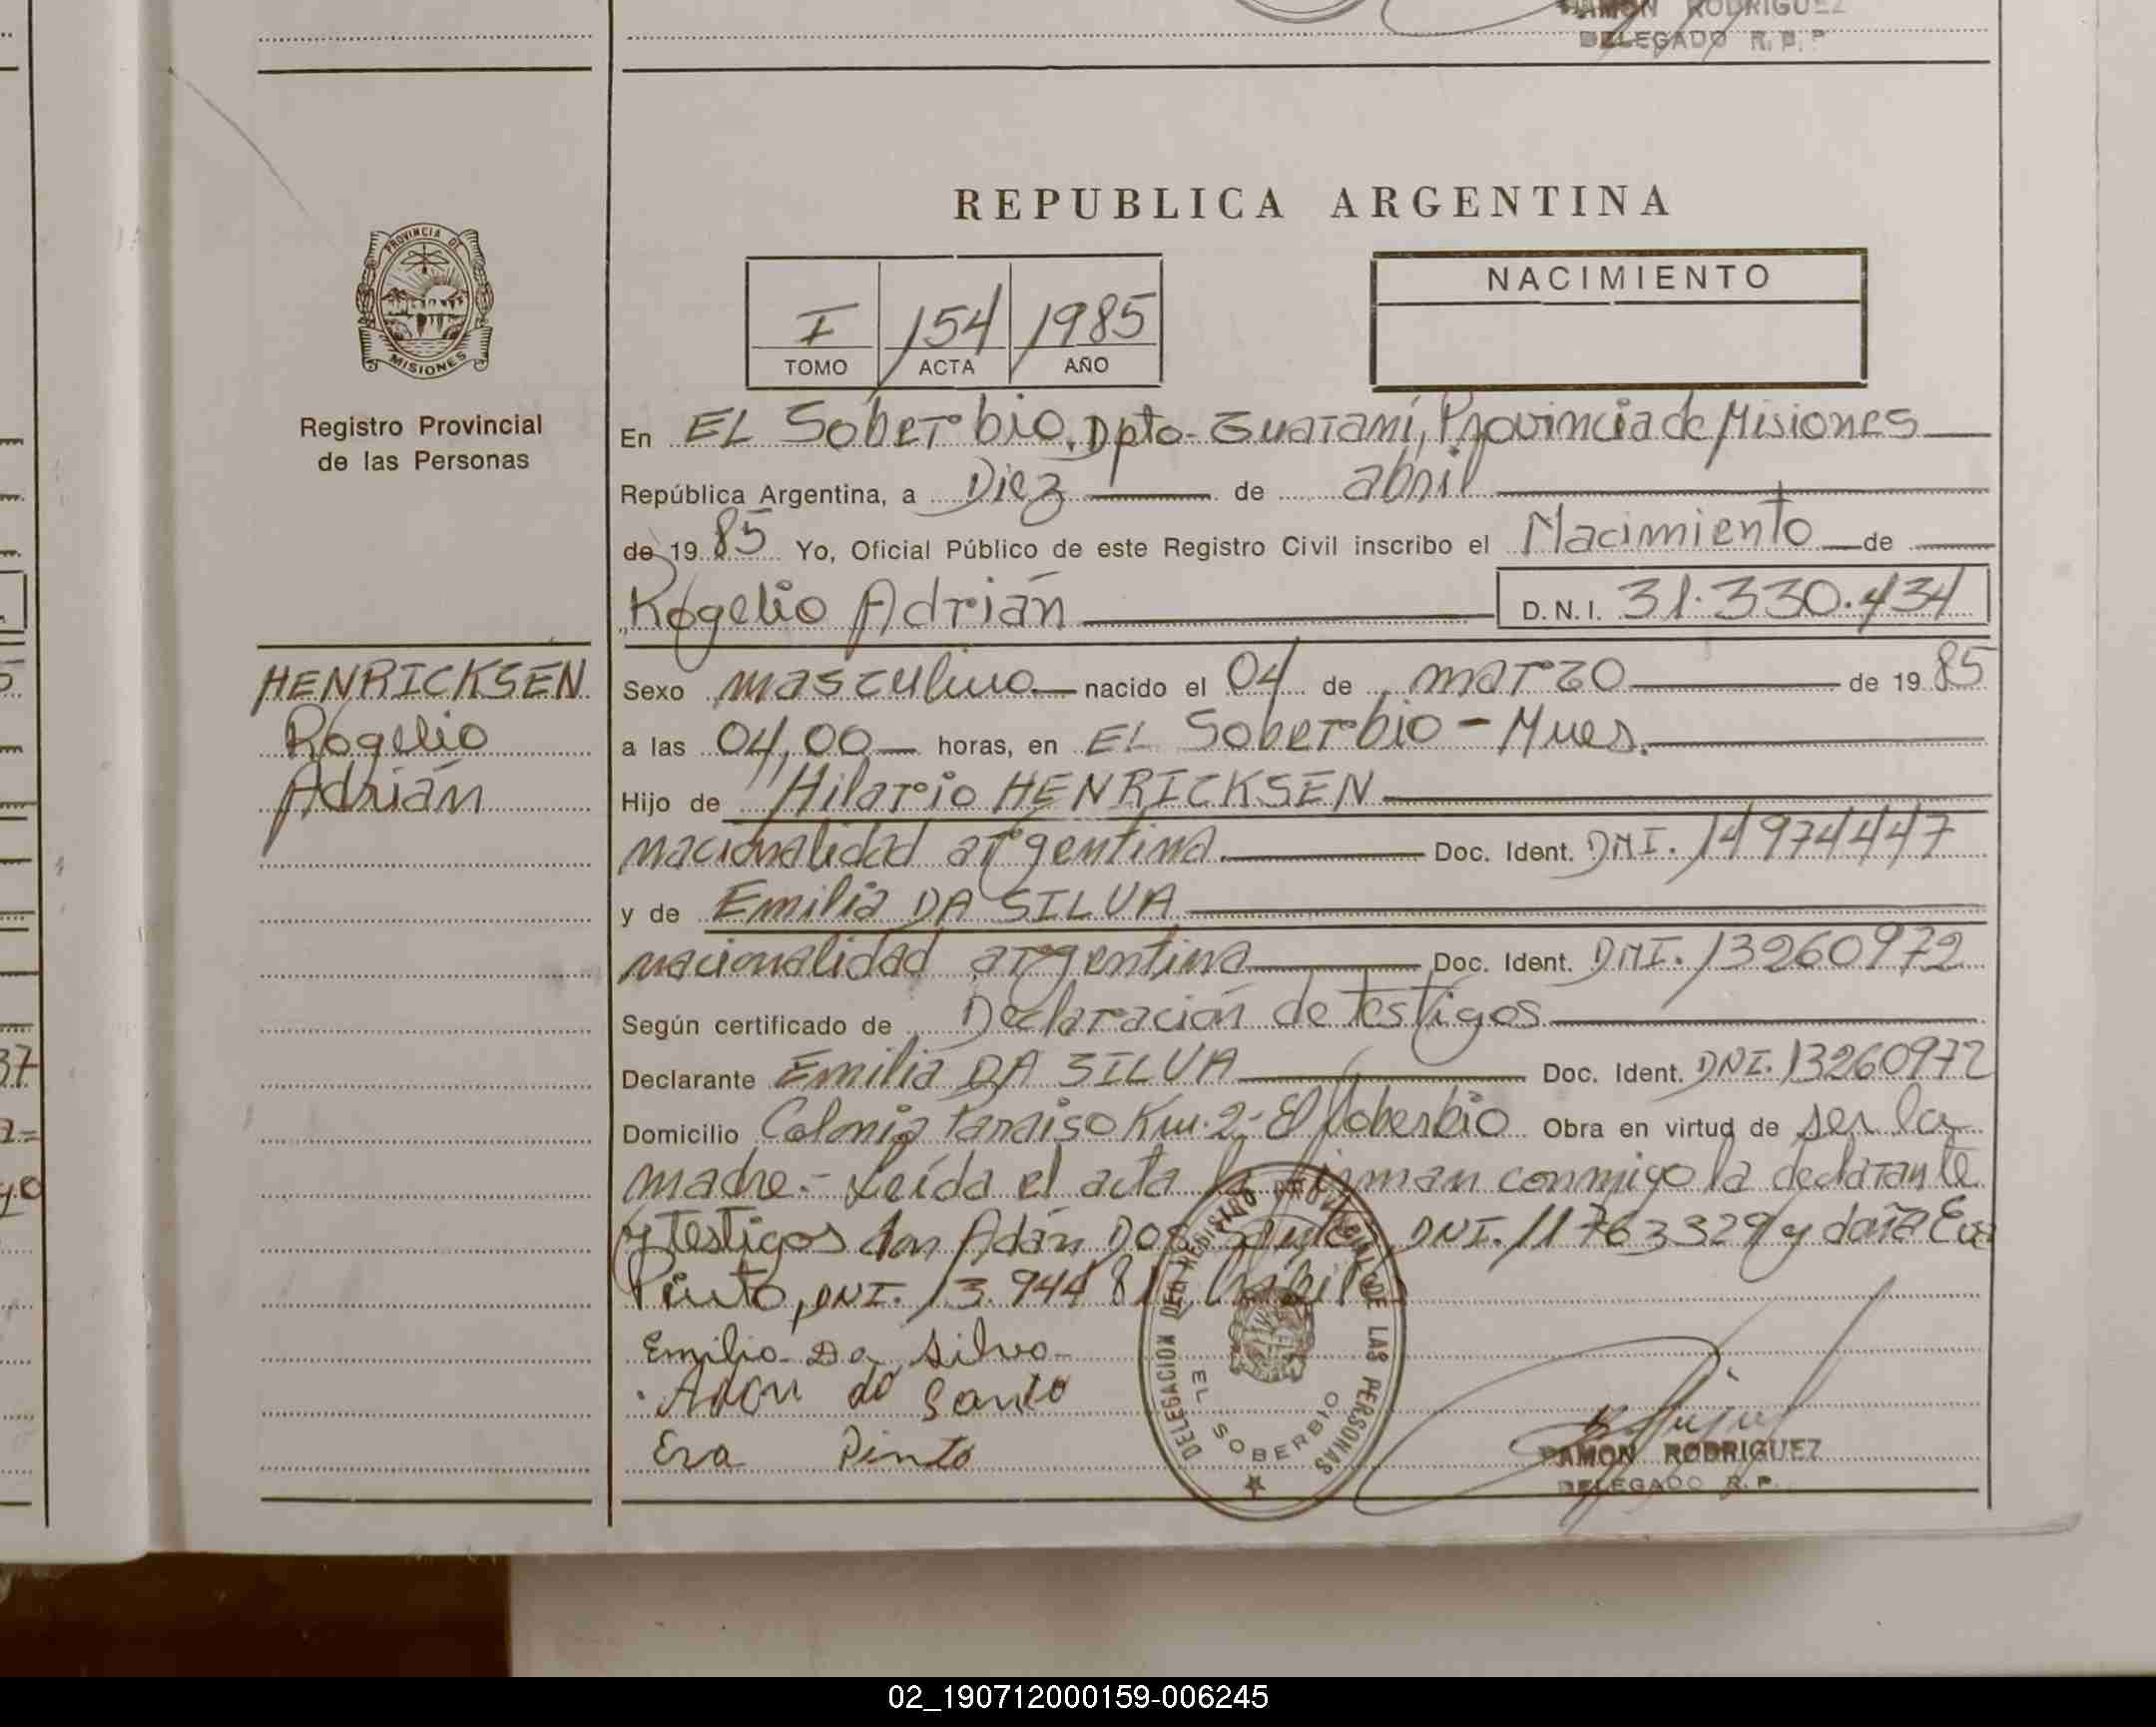 RAMON RODRIGUEZ
DELEGADO R. P. P
REPUBLICA ARGENTINA
PROVINCIA DE
MISIONES
Registro Provincial
de las Personas
I 154 1985
TOMO ACTA AÑO
NACIMIENTO
En EL Soberbio, Dpto- Guaraní, Provincia de Misiones
República Argentina, a Diez de abril
de 1985 Yo, Oficial Público de este Registro Civil inscribo el Nacimiento de
Rogelio Adrián D.N.I. 31.330.434
HENRICKSEN
Rogelio
Adrián
Sexo masculino nacido el 04 de marzo de 1985
a las 04,00 horas, en EL Soberbio - Mnes.
Hijo de Hilario HENRICKSEN
nacionalidad argentina Doc. Ident. DNI. 14974447
y de Emilia DA SILVA
nacionalidad argentina Doc. Ident. DNI. 13260972
Según certificado de Declaración de Testigos
Declarante Emilia DA SILVA Doc. Ident. DNI. 13260972
Domicilio Colonia Paraiso Km. 2- El Soberbio Obra en virtud de ser la
madre.- Leída el acta la firman conmigo la declarante
y Testigos don Adán DOS DNI. 11763329 y doña Eva
Pinto, DNI. 13.944 81
Emilia Da Silva
Adan do Santo
Eva Pinto
DELEGACION DEL REGISTRO PROVINCIAL DE LAS PERSONAS
EL SOBERBIO
RAMON RODRIGUEZ
DELEGADO R. P.
02_190712000159-006245